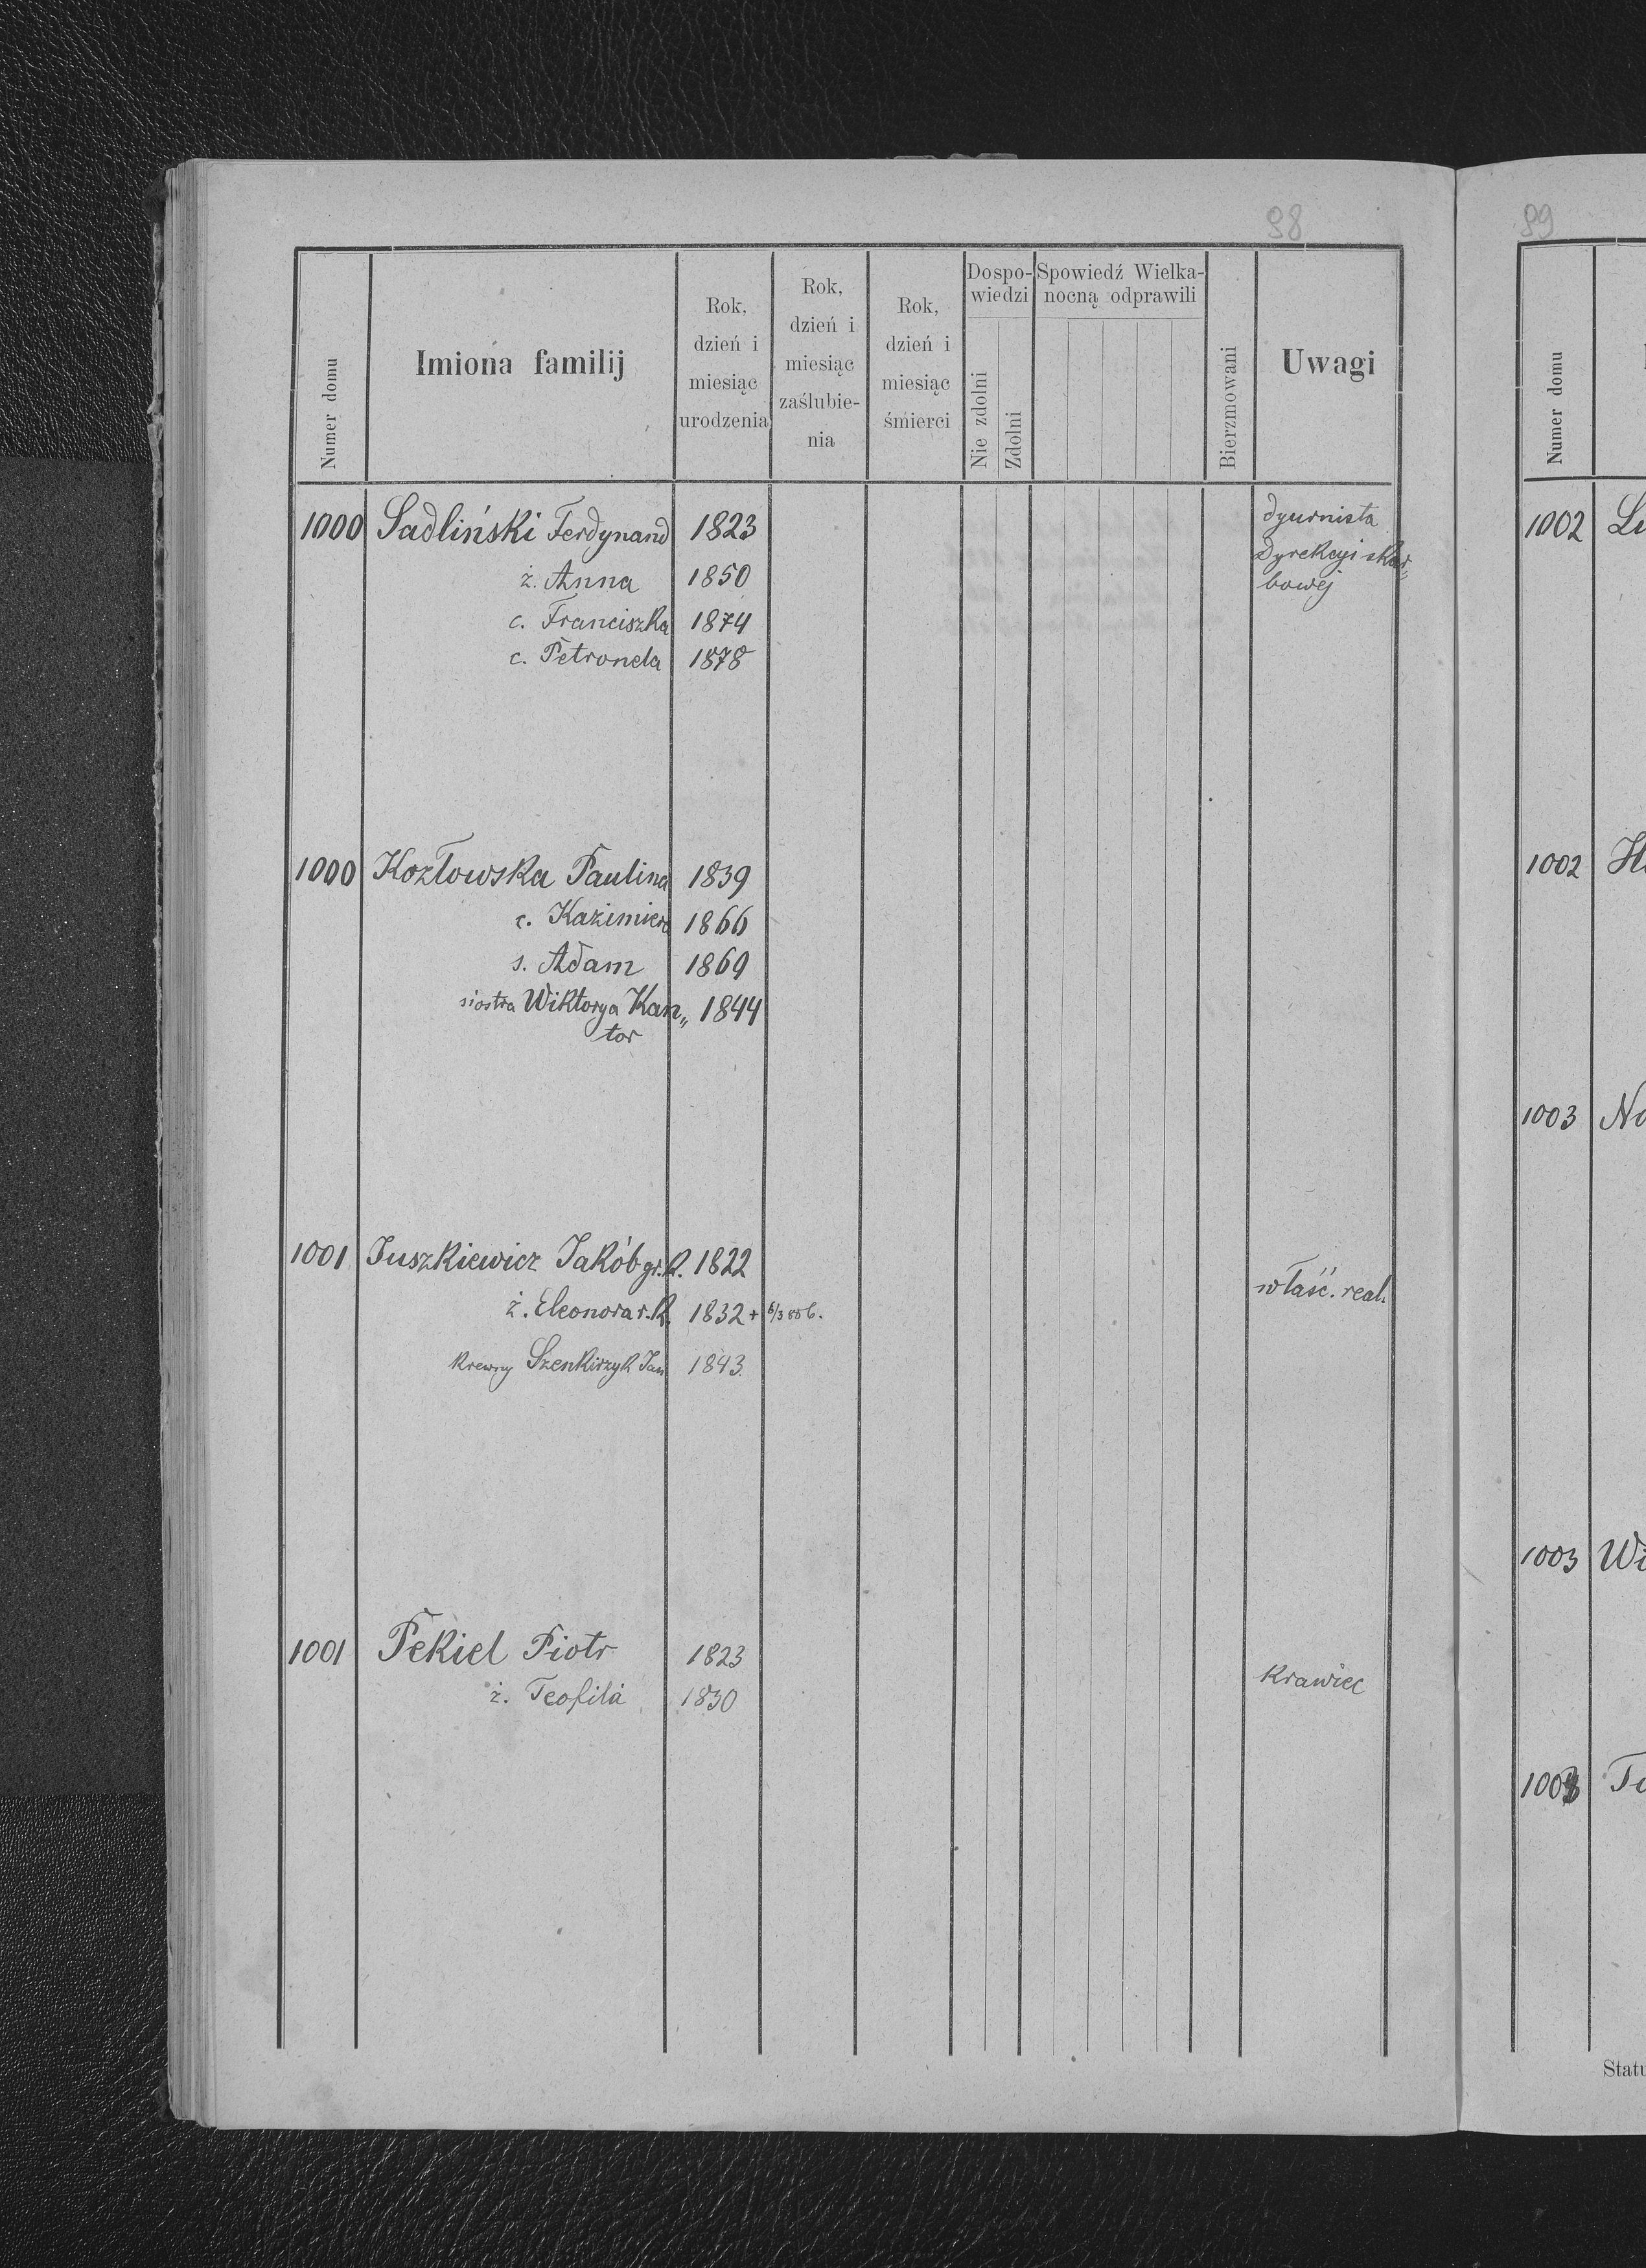 98
99
Numer domu
Imiona familij
Rok,
dzień i
miesiąc
urodzenia
Rok,
dzień i
miesiąc
zaślubie-
nia
Rok,
dzień i
miesiąc
śmierci
Dospo-
wiedzi
Nie zdolni
Zdolni
Spowiedź Wielka-
nocną odprawili
Bierzmowani
Uwagi
1000 Sadliński Ferdynand 1823 dyurnista
Dyrekcyi skar„
ż. Anna 1850 bowéj
c. Franciszka 1874
c. Petronela 1878
1000 Kozłowska Paulina 1839
c. Kazimiera 1866
s. Adam 1869
siostra Wiktorya Kan„ 1844
tor
1001 Juszkiewicz Jakób gr.k. 1822 właść. real.
ż. Eleonora r.k. 1832 + 6/3 886.
Krewny Szenkirzyk Jan 1843.
1001 Pekiel Piotr 1823 Krawiec
ż. Teofila 1830
Numer domu
1002
1002
1003 No
1003 Wi
Statu